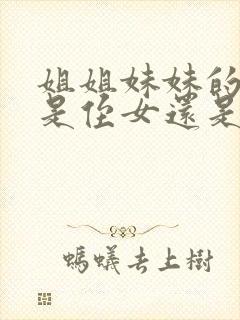 姐姐妹妹的
是侄女還是
螞蟻去上樹